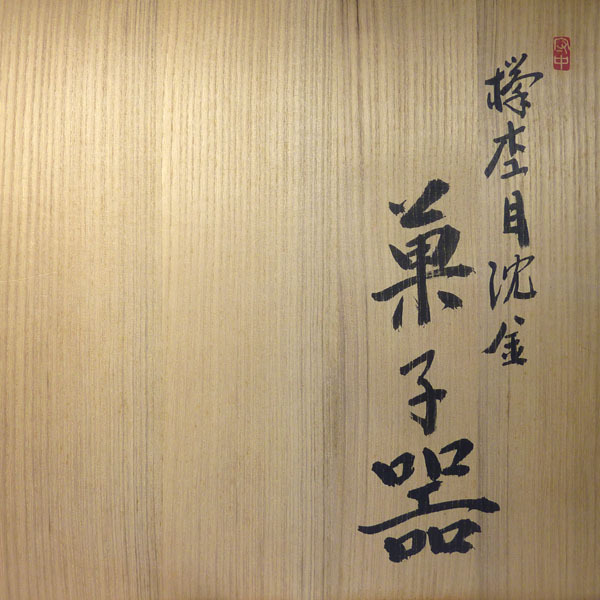 欅杢目沈金
菓子噐